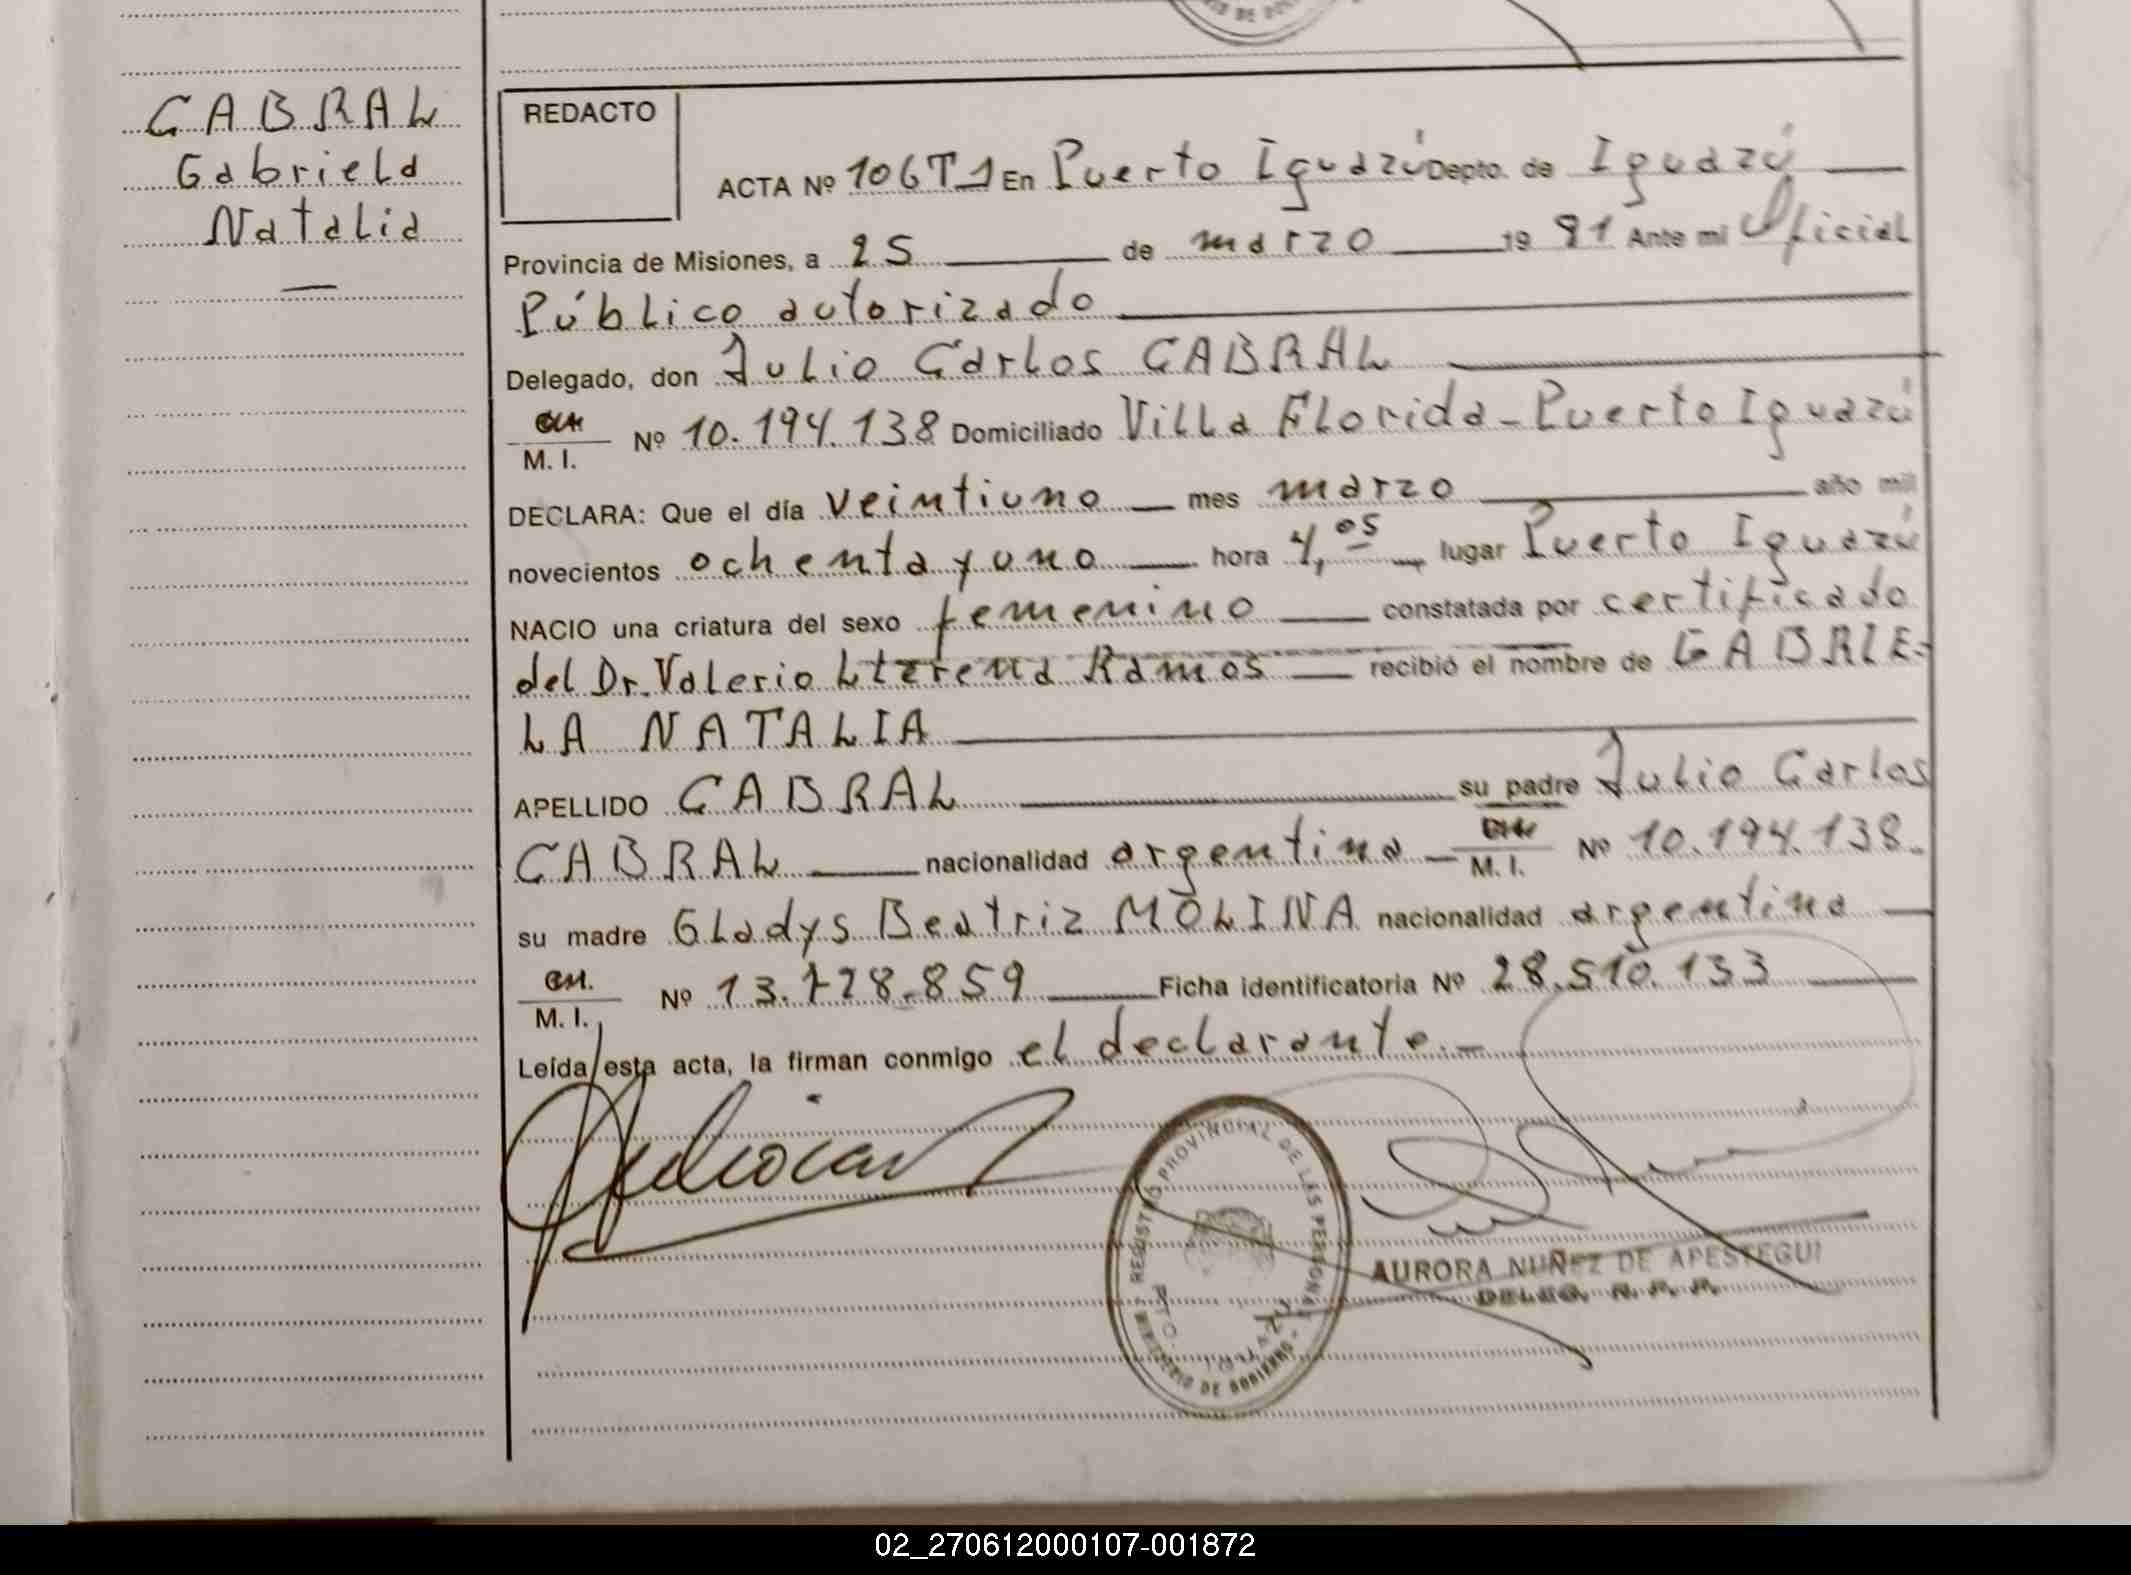 CABRAL
Gabriela
Natalia
REDACTO
ACTA Nº 106T1 En Puerto Iguazú Depto. de Iguazú
Provincia de Misiones, a 25 de marzo 19 81 Ante mi Oficial
Público autorizado
Delegado, don Julio Carlos CABRAL
M. I. Nº 10.194.138 Domiciliado Villa Florida - Puerto Iguazú
DECLARA: Que el día veintiuno mes marzo año mil
novecientos ochenta y uno hora 4,05 lugar Puerto Iguazú
NACIO una criatura del sexo femenino constatada por certificado
del Dr. Valerio Ramos recibió el nombre de GABRIE-
LA NATALIA
APELLIDO CABRAL su padre Julio Carlos
CABRAL nacionalidad argentina M. I. Nº 10.194.138.
su madre Gladys Beatriz MOLINA nacionalidad argentina
M. I. Nº 13.728.859 Ficha identificatoria Nº 28.510.133
Leída esta acta, la firman conmigo el declarante.-
REGISTRO PROVINCIAL DE LAS PERSONAS
MINISTERIO DE GOBIERNO
AURORA NUÑEZ DE APESTEGUI
DELEG. R. P. P.
02_270612000107-001872